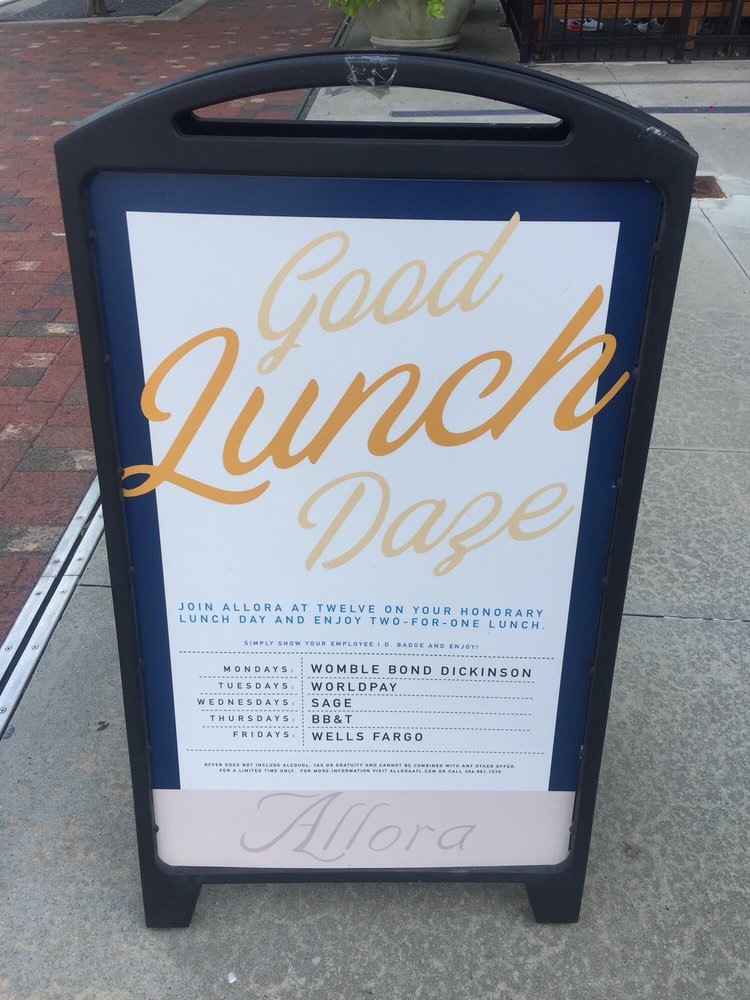 Good
Lunch
Daze
JOIN ALLORA AT TWELVE ON YOUR HONORARY
LUNCH DAY AND ENJOY TWO-FOR-ONE LUNCH.
SIMPLY SHOW YOUR EMPLOYEE I.D. BADGE AND ENJOY!
MONDAYS: WOMBLE BOND DICKINSON
TUESDAYS: WORLDPAY
WEDNESDAYS: SAGE
THURSDAYS: BB&T
FRIDAYS: WELLS FARGO
OFFER DOES NOT INCLUDE ALCOHOL, TAX OR GRATUITY AND CANNOT BE COMBINED WITH ANY OTHER OFFER.
FOR A LIMITED TIME ONLY. FOR MORE INFORMATION VISIT ALLORAATL.COM OR CALL 404.961.7370
Allora